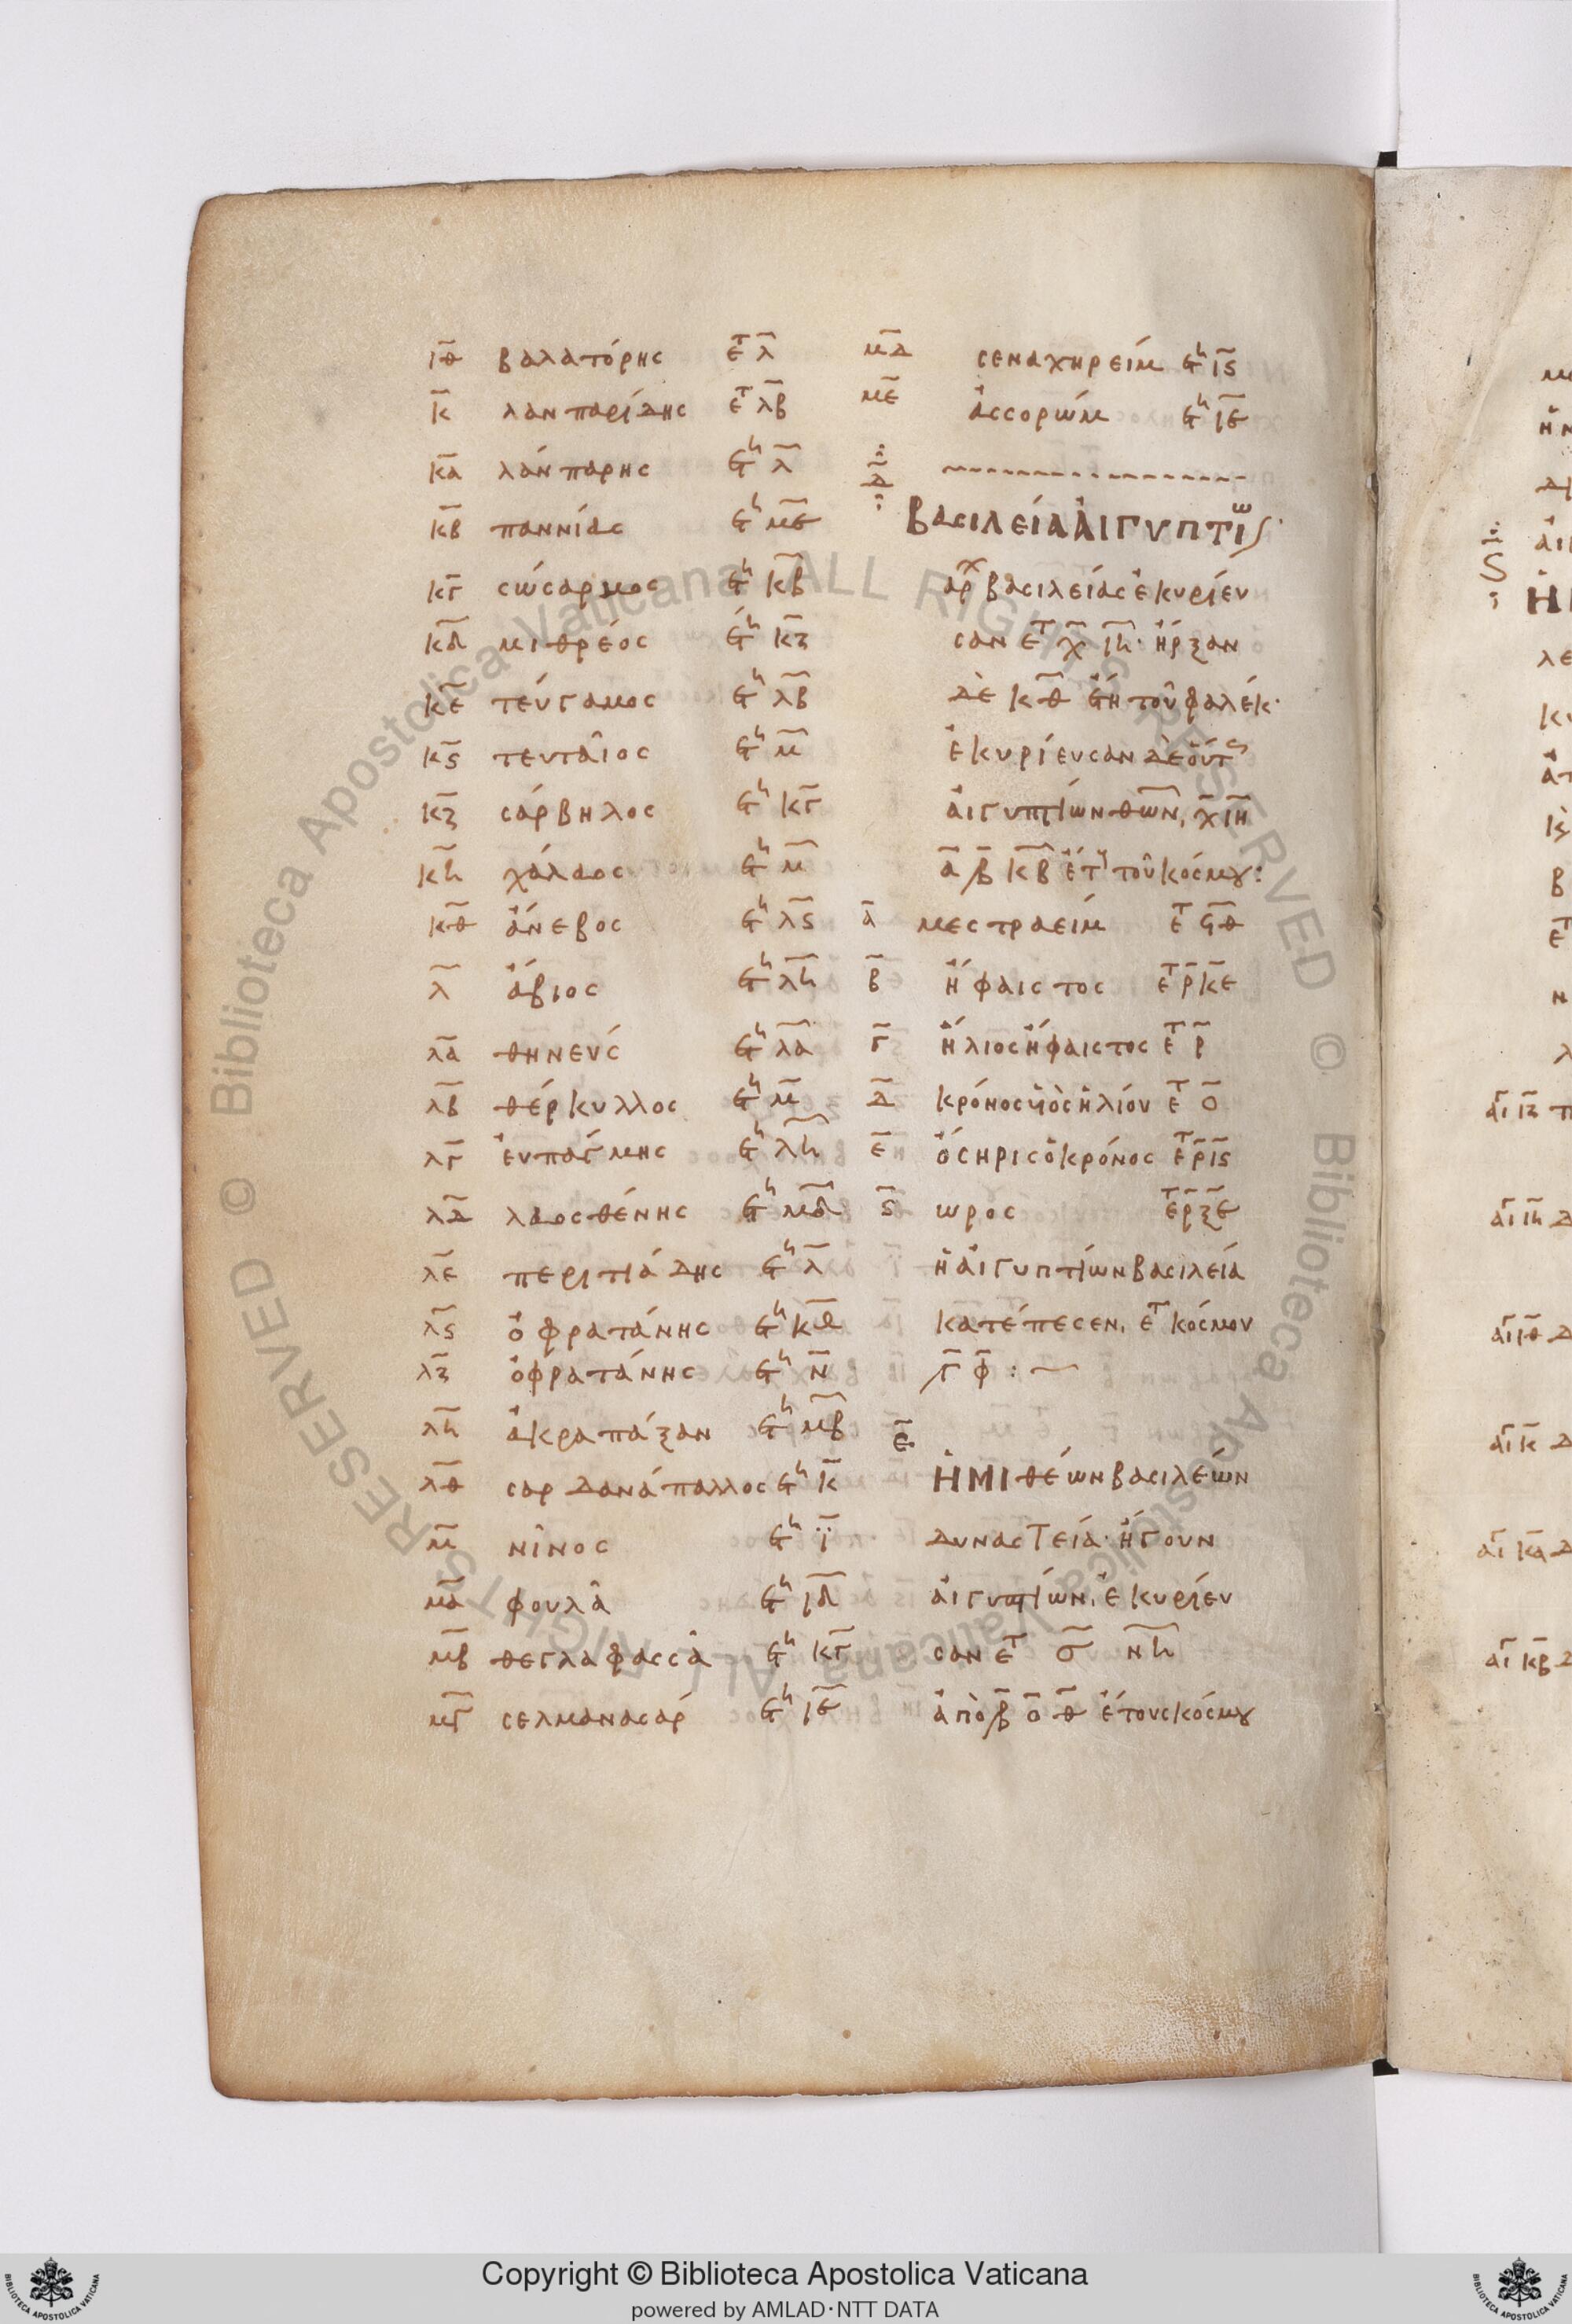 ιθ βαλατόρης ετ λ
κ λανπαρίδης ετ λβ
κα λάνπαρης ετη λ
κβ παννίας ετη με
κγ σώσαρμος ετη κβ
κδ μιθρέος ετη κζ
κε τεύταμος ετη λβ
κς τευταῖος ετη μ
κζ σάρβηλος ετη κγ
κη χάλαος ετη μ
κθ ἄνεβος ετη λς
λ ἄβιος ετη λη
λα θηνεύς ετη λα
λβ θέρκυλλος ετη μ
λγ ἐυπάγμης ετη λη
λδ λαοσθένης ετη μδ
λε περιτιάδης ετη λ
λς ὀφρατάνης ετη κα
λζ ὀφρατάνης ετη ν
λη ἀκραπάζαν ετη μβ
λθ σαρδανάπαλλος ετη κ
μ νῖνος ετη ϊ
μα φουλᾶ ετη ιδ
μβ θεγλαφασσᾶ ετη κγ
μγ σελμανασάρ ετη ιε
μδ σεναχηρείμ ετη ις
με ἀσσορώμ ετη ιε
δ
βασιλεία ἀιγυπτίω
αρχ βασιλείας ἐκυρίευ
σαν ετ χ ιη· ἤρξαν
δὲ κθ ἔτη τοῦ φαλέκ·
ἐκυρίευσαν δὲ ὅυτ
ἀιγυπτίων θων, χιη
α β κβ ἔτ τοῦ κόσμου:
α μεστραείμ ετ ϟθ
β ἥφαιστος ετ ρκε
γ ἥλιος ἥφαιστος ετ ρ
δ κρόνος υἱὸς ἡλίου ετ ο
ε ὄσηρις ὁ κρόνος ετ ρις
ς ωρος ετ ρξε
ἡ ἀιγυπτίων βασιλεία
κατέπεσεν, ετ κόσμου
γ φ :
ε
ἡμιθέων βασιλεών
δυναστεία· ἤγουν
ἀιγυπτίων, ἐκυρίευ
σαν ετ σ νη
ἀπὸ β ο θ ἔτους κόσμου
Copyright © Biblioteca Apostolica Vaticana
powered by AMLAD·NTT DATA